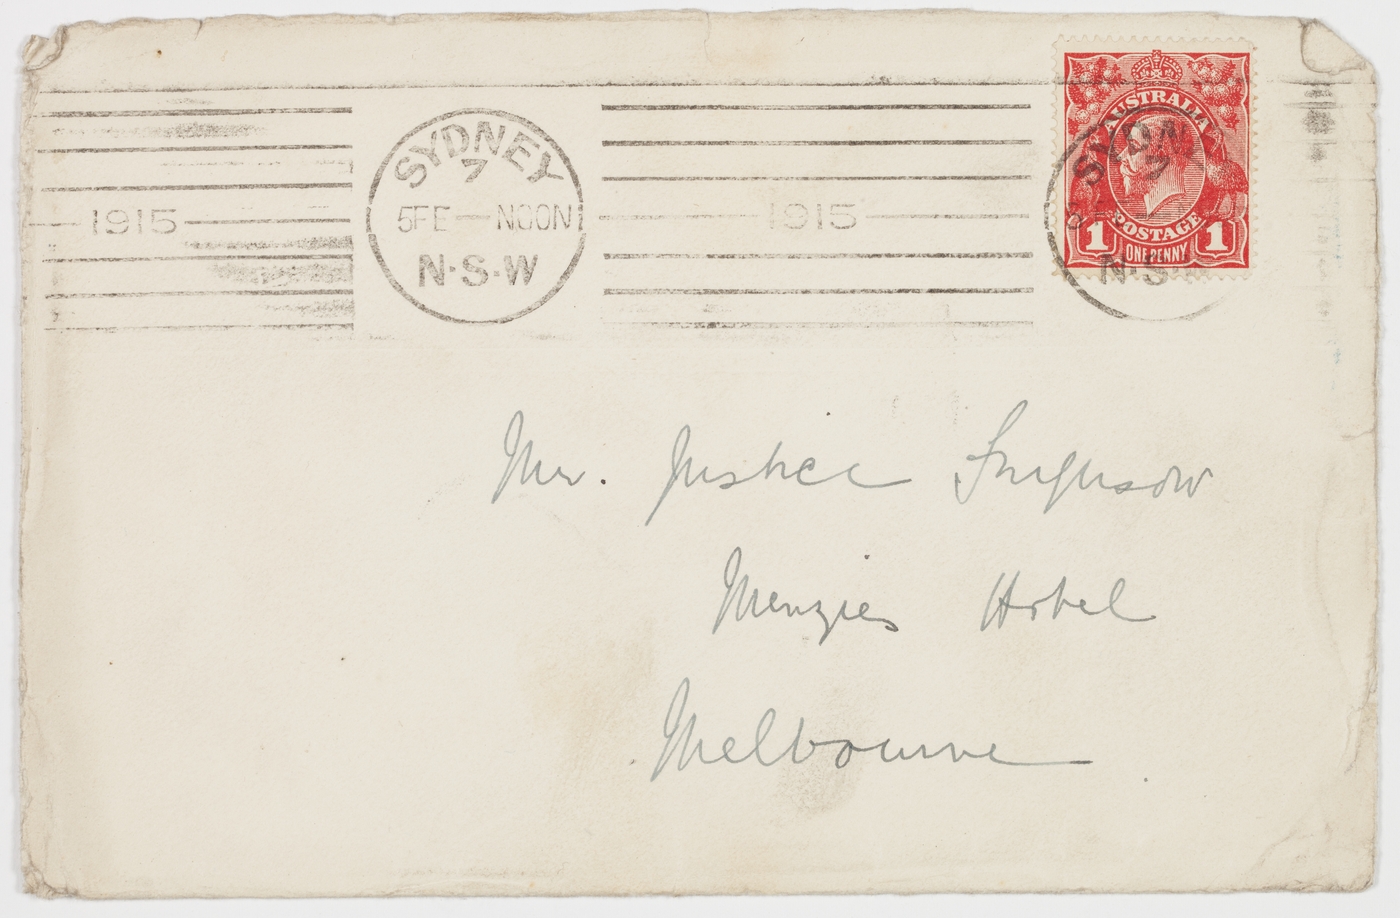 SYDNEY
7
1915 5FE — NOON 1915
N·S·W
AUSTRALIA
POSTAGE
1 ONE PENNY 1
SYDN
7
N·S·
Mr. Justice Ferguson
Menzies Hotel
Melbourne